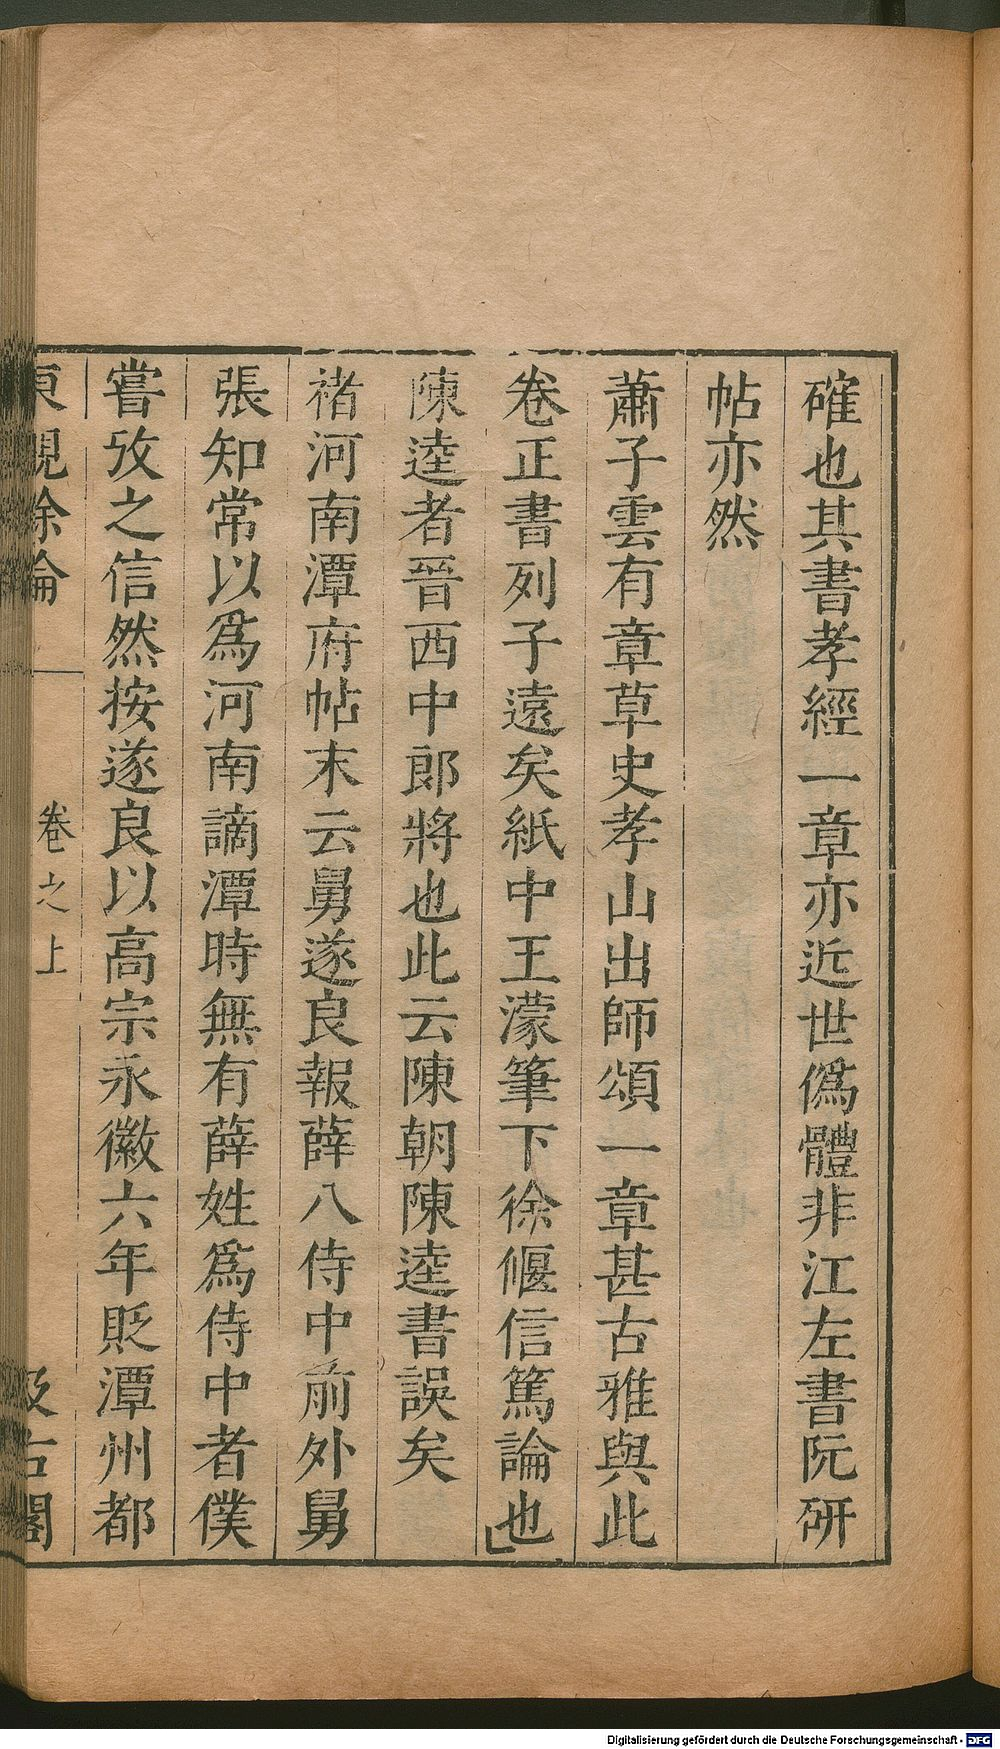 確也其書孝經一章亦近世僞體非江左書阮研
帖亦然
蕭子雲有章草史孝山出師頌一章甚古雅與此
卷正書列子遠矣紙中王濛筆下徐偃信篤論也
陳逵者晉西中郎將也此云陳朝陳逵書誤矣
褚河南潭府帖末云舅遂良報薛八侍中前外舅
張知常以爲河南謫潭時無有薛姓爲侍中者僕
嘗攷之信然按遂良以高宗永徽六年貶潭州都
東觀餘論 卷之上 汲古閣
Digitalisierung gefördert durch die Deutsche Forschungsgemeinschaft - DFG